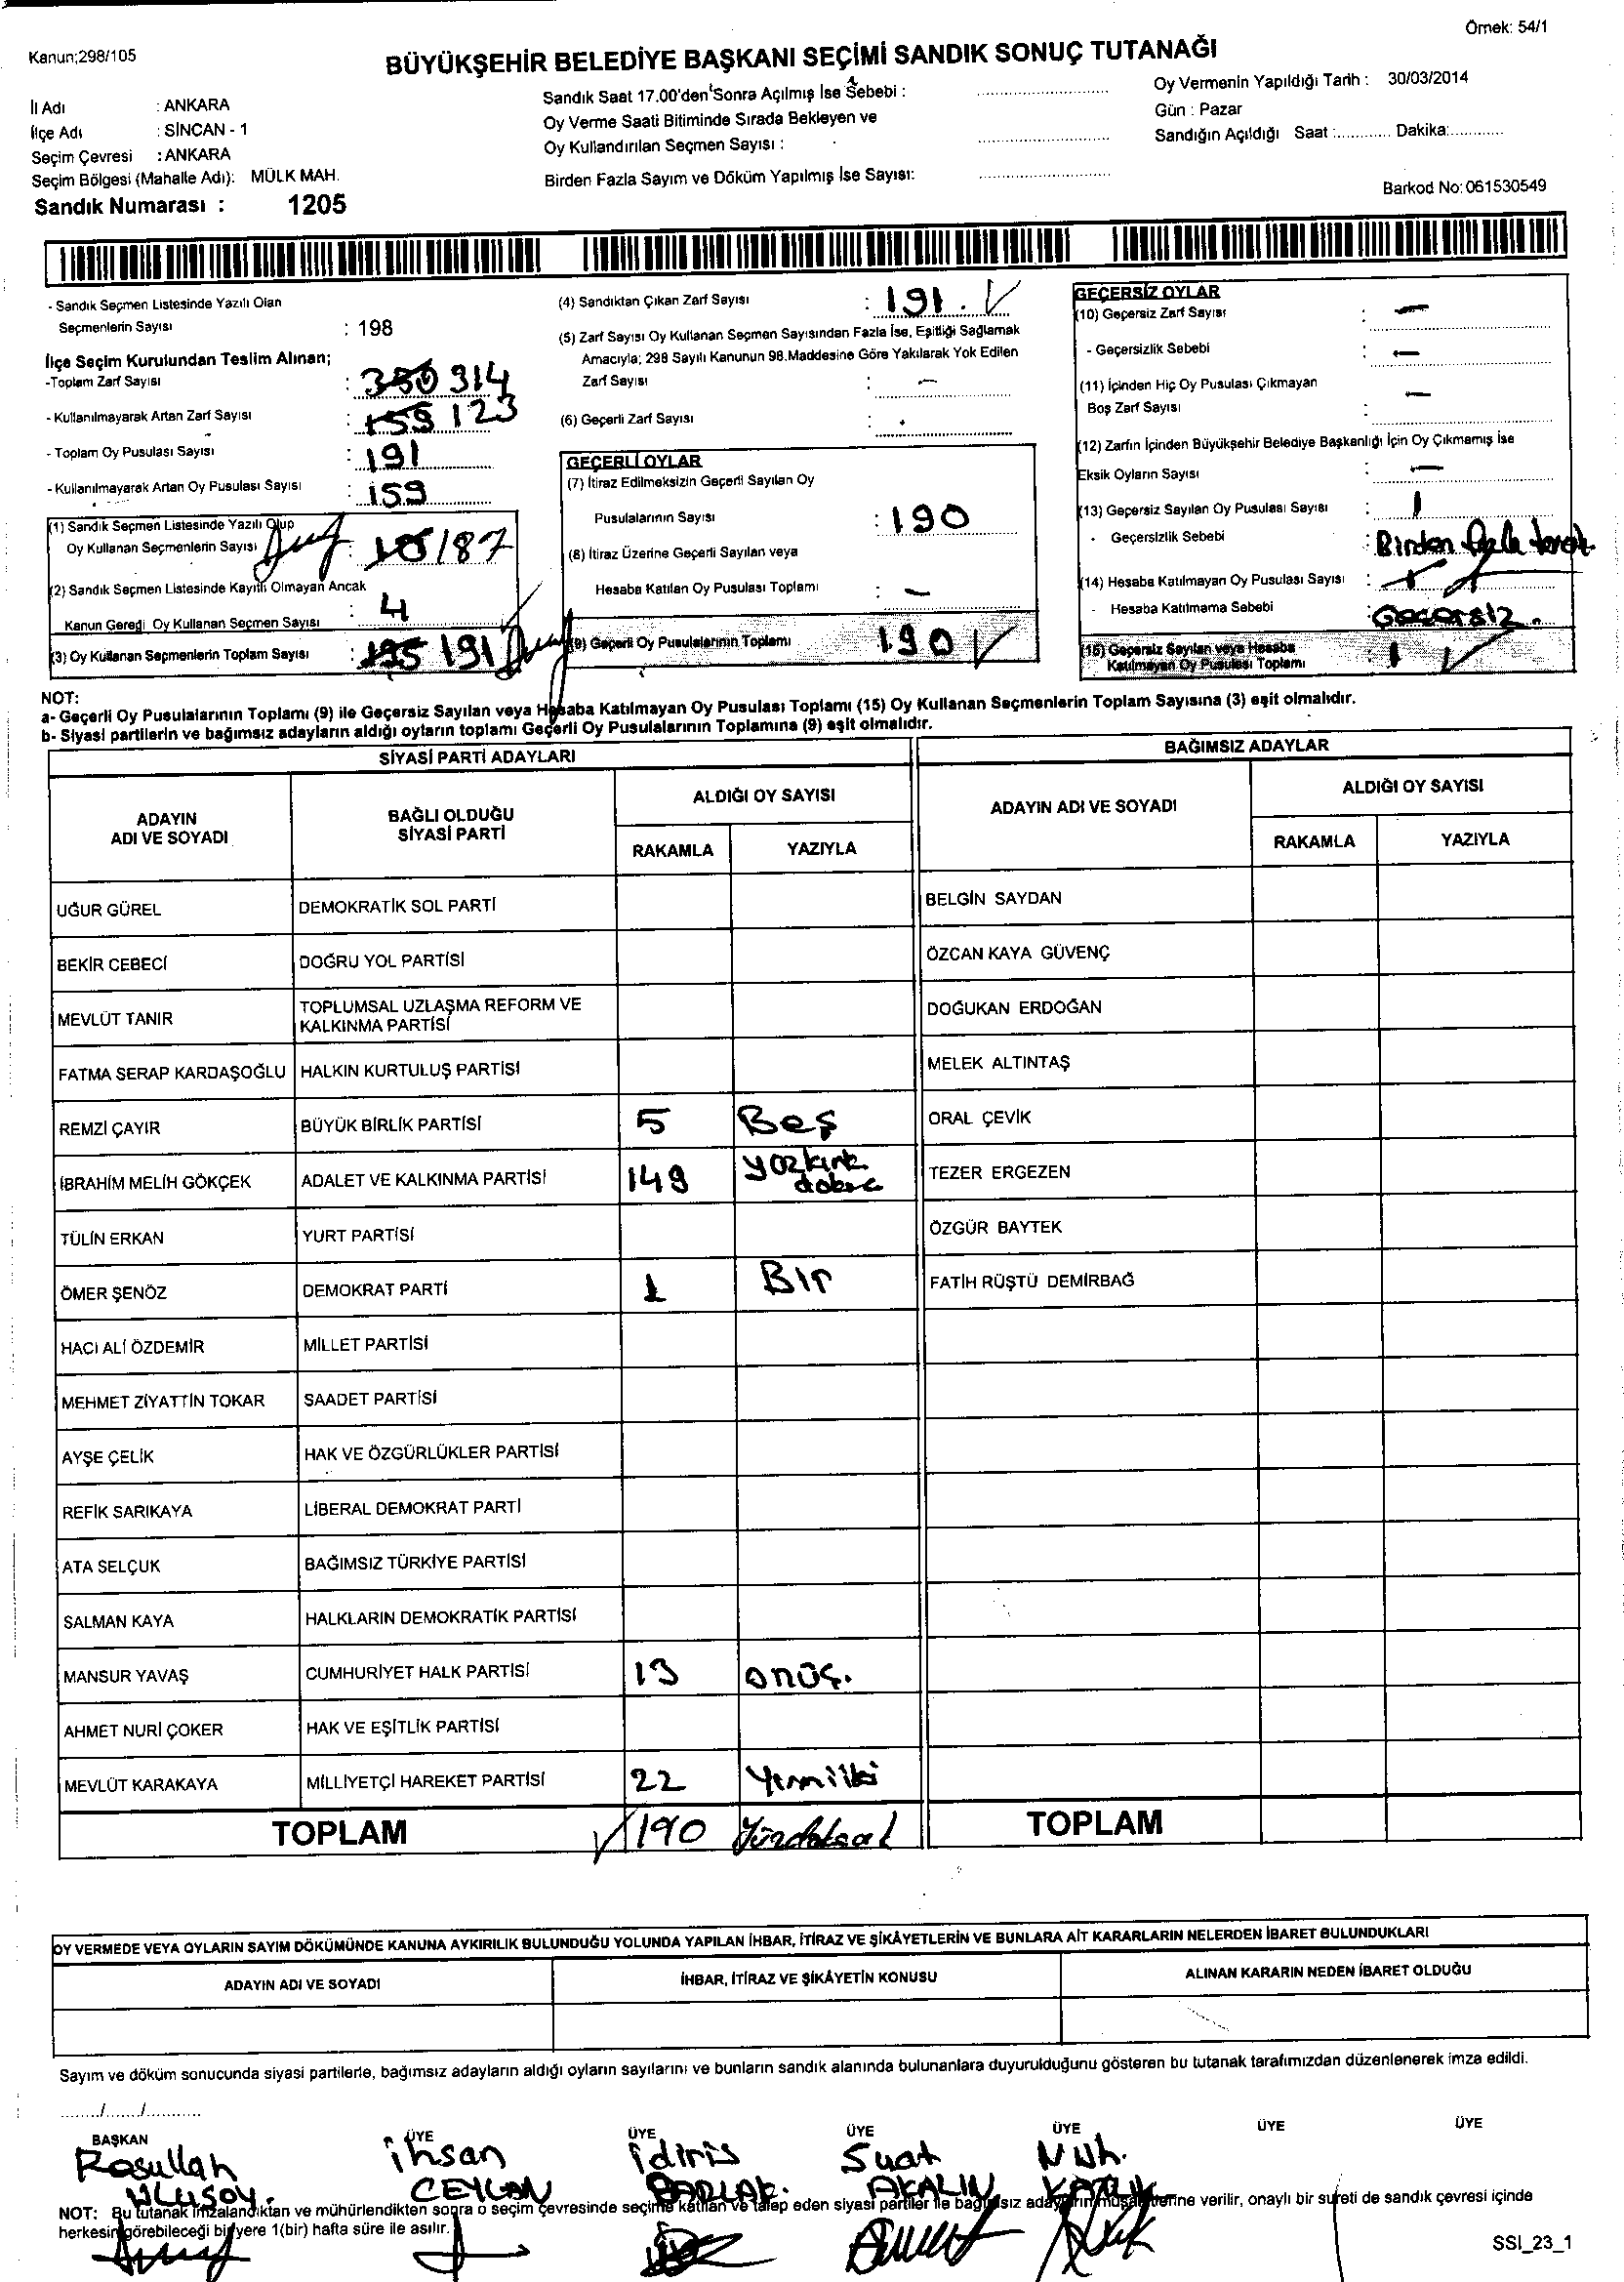 Örnek: 54/1
Kanun;298/105
BÜYÜKŞEHİR BELEDİYE BAŞKANI SEÇİMİ SANDIK SONUÇ TUTANAĞI
İl Adı : ANKARA
İlçe Adı : SİNCAN - 1
Seçim Çevresi : ANKARA
Seçim Bölgesi (Mahalle Adı): MÜLK MAH.
Sandık Numarası : 1205
Sandık Saat 17.00'den Sonra Açılmış İse Sebebi :
Oy Verme Saati Bitiminde Sırada Bekleyen ve
Oy Kullandırılan Seçmen Sayısı :
Birden Fazla Sayım ve Döküm Yapılmış İse Sayısı:
Oy Vermenin Yapıldığı Tarih : 30/03/2014
Gün : Pazar
Sandığın Açıldığı Saat :............ Dakika:............
Barkod No: 061530549
- Sandık Seçmen Listesinde Yazılı Olan
Seçmenlerin Sayısı : 198
İlçe Seçim Kurulundan Teslim Alınan;
-Toplam Zarf Sayısı : 350 314
- Kullanılmayarak Artan Zarf Sayısı : 159 123
- Toplam Oy Pusulası Sayısı : 191
- Kullanılmayarak Artan Oy Pusulası Sayısı : 159
(1) Sandık Seçmen Listesinde Yazılı Olup
Oy Kullanan Seçmenlerin Sayısı : 187
(2) Sandık Seçmen Listesinde Kayıtlı Olmayan Ancak
Kanun Gereği Oy Kullanan Seçmen Sayısı : 4
(3) Oy Kullanan Seçmenlerin Toplam Sayısı : 195 191
(4) Sandıktan Çıkan Zarf Sayısı : 191.
(5) Zarf Sayısı Oy Kullanan Seçmen Sayısından Fazla İse, Eşitliği Sağlamak
Amacıyla; 298 Sayılı Kanunun 98.Maddesine Göre Yakılarak Yok Edilen
Zarf Sayısı : —
(6) Geçerli Zarf Sayısı :
GEÇERLİ OYLAR
(7) İtiraz Edilmeksizin Geçerli Sayılan Oy
Pusulalarının Sayısı : 190
(8) İtiraz Üzerine Geçerli Sayılan veya
Hesaba Katılan Oy Pusulası Toplamı : —
(9) Geçerli Oy Pusulalarının Toplamı 190
GEÇERSİZ OYLAR
(10) Geçersiz Zarf Sayısı : —
- Geçersizlik Sebebi : —
(11) İçinden Hiç Oy Pusulası Çıkmayan
Boş Zarf Sayısı : —
(12) Zarfın İçinden Büyükşehir Belediye Başkanlığı İçin Oy Çıkmamış İse
Eksik Oyların Sayısı : —
(13) Geçersiz Sayılan Oy Pusulası Sayısı : 1
- Geçersizlik Sebebi : Birden fazla
(14) Hesaba Katılmayan Oy Pusulası Sayısı :
- Hesaba Katılmama Sebebi : Geçersiz.
(15) Geçersiz Sayılan veya Hesaba
Katılmayan Oy Pusulası Toplamı 1
NOT:
a- Geçerli Oy Pusulalarının Toplamı (9) ile Geçersiz Sayılan veya Hesaba Katılmayan Oy Pusulası Toplamı (15) Oy Kullanan Seçmenlerin Toplam Sayısına (3) eşit olmalıdır.
b- Siyasi partilerin ve bağımsız adayların aldığı oyların toplamı Geçerli Oy Pusulalarının Toplamına (9) eşit olmalıdır.
SİYASİ PARTİ ADAYLARI
ADAYIN ADI VE SOYADI
BAĞLI OLDUĞU SİYASİ PARTİ
ALDIĞI OY SAYISI
RAKAMLA YAZIYLA
UĞUR GÜREL DEMOKRATİK SOL PARTİ
BEKİR CEBECİ DOĞRU YOL PARTİSİ
MEVLÜT TANIR TOPLUMSAL UZLAŞMA REFORM VE KALKINMA PARTİSİ
FATMA SERAP KARDAŞOĞLU HALKIN KURTULUŞ PARTİSİ
REMZİ ÇAYIR BÜYÜK BİRLİK PARTİSİ 5 Beş
İBRAHİM MELİH GÖKÇEK ADALET VE KALKINMA PARTİSİ 149 yözkırk dokuz
TÜLİN ERKAN YURT PARTİSİ
ÖMER ŞENÖZ DEMOKRAT PARTİ 1 Bir
HACI ALİ ÖZDEMİR MİLLET PARTİSİ
MEHMET ZİYATTİN TOKAR SAADET PARTİSİ
AYŞE ÇELİK HAK VE ÖZGÜRLÜKLER PARTİSİ
REFİK SARIKAYA LİBERAL DEMOKRAT PARTİ
ATA SELÇUK BAĞIMSIZ TÜRKİYE PARTİSİ
SALMAN KAYA HALKLARIN DEMOKRATİK PARTİSİ
MANSUR YAVAŞ CUMHURİYET HALK PARTİSİ 13 onüç.
AHMET NURİ ÇOKER HAK VE EŞİTLİK PARTİSİ
MEVLÜT KARAKAYA MİLLİYETÇİ HAREKET PARTİSİ 22 Yirmiiki
TOPLAM 190 Yüzdoksan
BAĞIMSIZ ADAYLAR
ADAYIN ADI VE SOYADI
ALDIĞI OY SAYISI
RAKAMLA YAZIYLA
BELGİN SAYDAN
ÖZCAN KAYA GÜVENÇ
DOĞUKAN ERDOĞAN
MELEK ALTINTAŞ
ORAL ÇEVİK
TEZER ERGEZEN
ÖZGÜR BAYTEK
FATİH RÜŞTÜ DEMİRBAĞ
TOPLAM
OY VERMEDE VEYA OYLARIN SAYIM DÖKÜMÜNDE KANUNA AYKIRILIK BULUNDUĞU YOLUNDA YAPILAN İHBAR, İTİRAZ VE ŞİKÂYETLERİN VE BUNLARA AİT KARARLARIN NELERDEN İBARET BULUNDUKLARI
ADAYIN ADI VE SOYADI İHBAR, İTİRAZ VE ŞİKÂYETİN KONUSU ALINAN KARARIN NEDEN İBARET OLDUĞU
Sayım ve döküm sonucunda siyasi partilerle, bağımsız adayların aldığı oyların sayılarını ve bunların sandık alanında bulunanlara duyurulduğunu gösteren bu tutanak tarafımızdan düzenlenerek imza edildi.
......../......./...........
BAŞKAN ÜYE ÜYE ÜYE ÜYE ÜYE ÜYE
Rasullah ihsan idiris Suat Nuh.
ULUSOY. CEYLAN PARLAK. AKALIN
NOT: Bu tutanak imzalandıktan ve mühürlendikten sonra o seçim çevresinde seçime katılan ve talep eden siyasi partiler ile bağımsız adayların müşahitlerine verilir, onaylı bir sureti de sandık çevresi içinde
herkesin görebileceği bir yere 1(bir) hafta süre ile asılır.
SSI_23_1